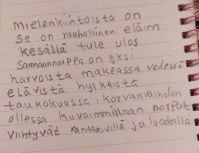 mielenkiintoista on
se on rauhallinen eläin
kesällä tule ulos
Saimaannorppa on yksi
harvoista makeassa vedessä
elävistä hylkeistä
taukokuussa. Karvanvaihdon
ollessa kuivaimmillaan norpat
viihtyvät rantakivillä ja luodoilla